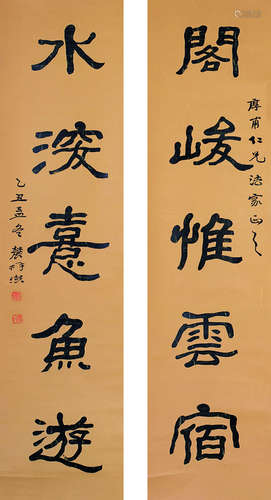 閣峻惟雲宿
厚甫仁兄法家正之
水深意魚遊
乙丑孟冬